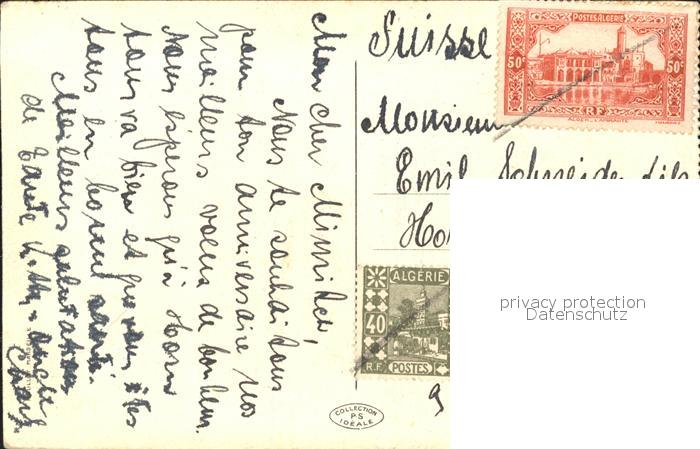 Mon cher Mimi
Nous te souhaitons
pour ton anniversaire nos
meilleurs vœux de bonheur.
Nous espérons qu'à Horn
tous va bien et que vous êtes
tous en bonne santé.
Meilleurs salutations
de tante
Suisse
Monsieur
Emil Schneider fils
POSTES ALGERIE
50c
50c
RF
ALGÉRIE
40
R.F.
POSTES
COLLECTION
PS
IDÉALE
9
privacy protection
Datenschutz